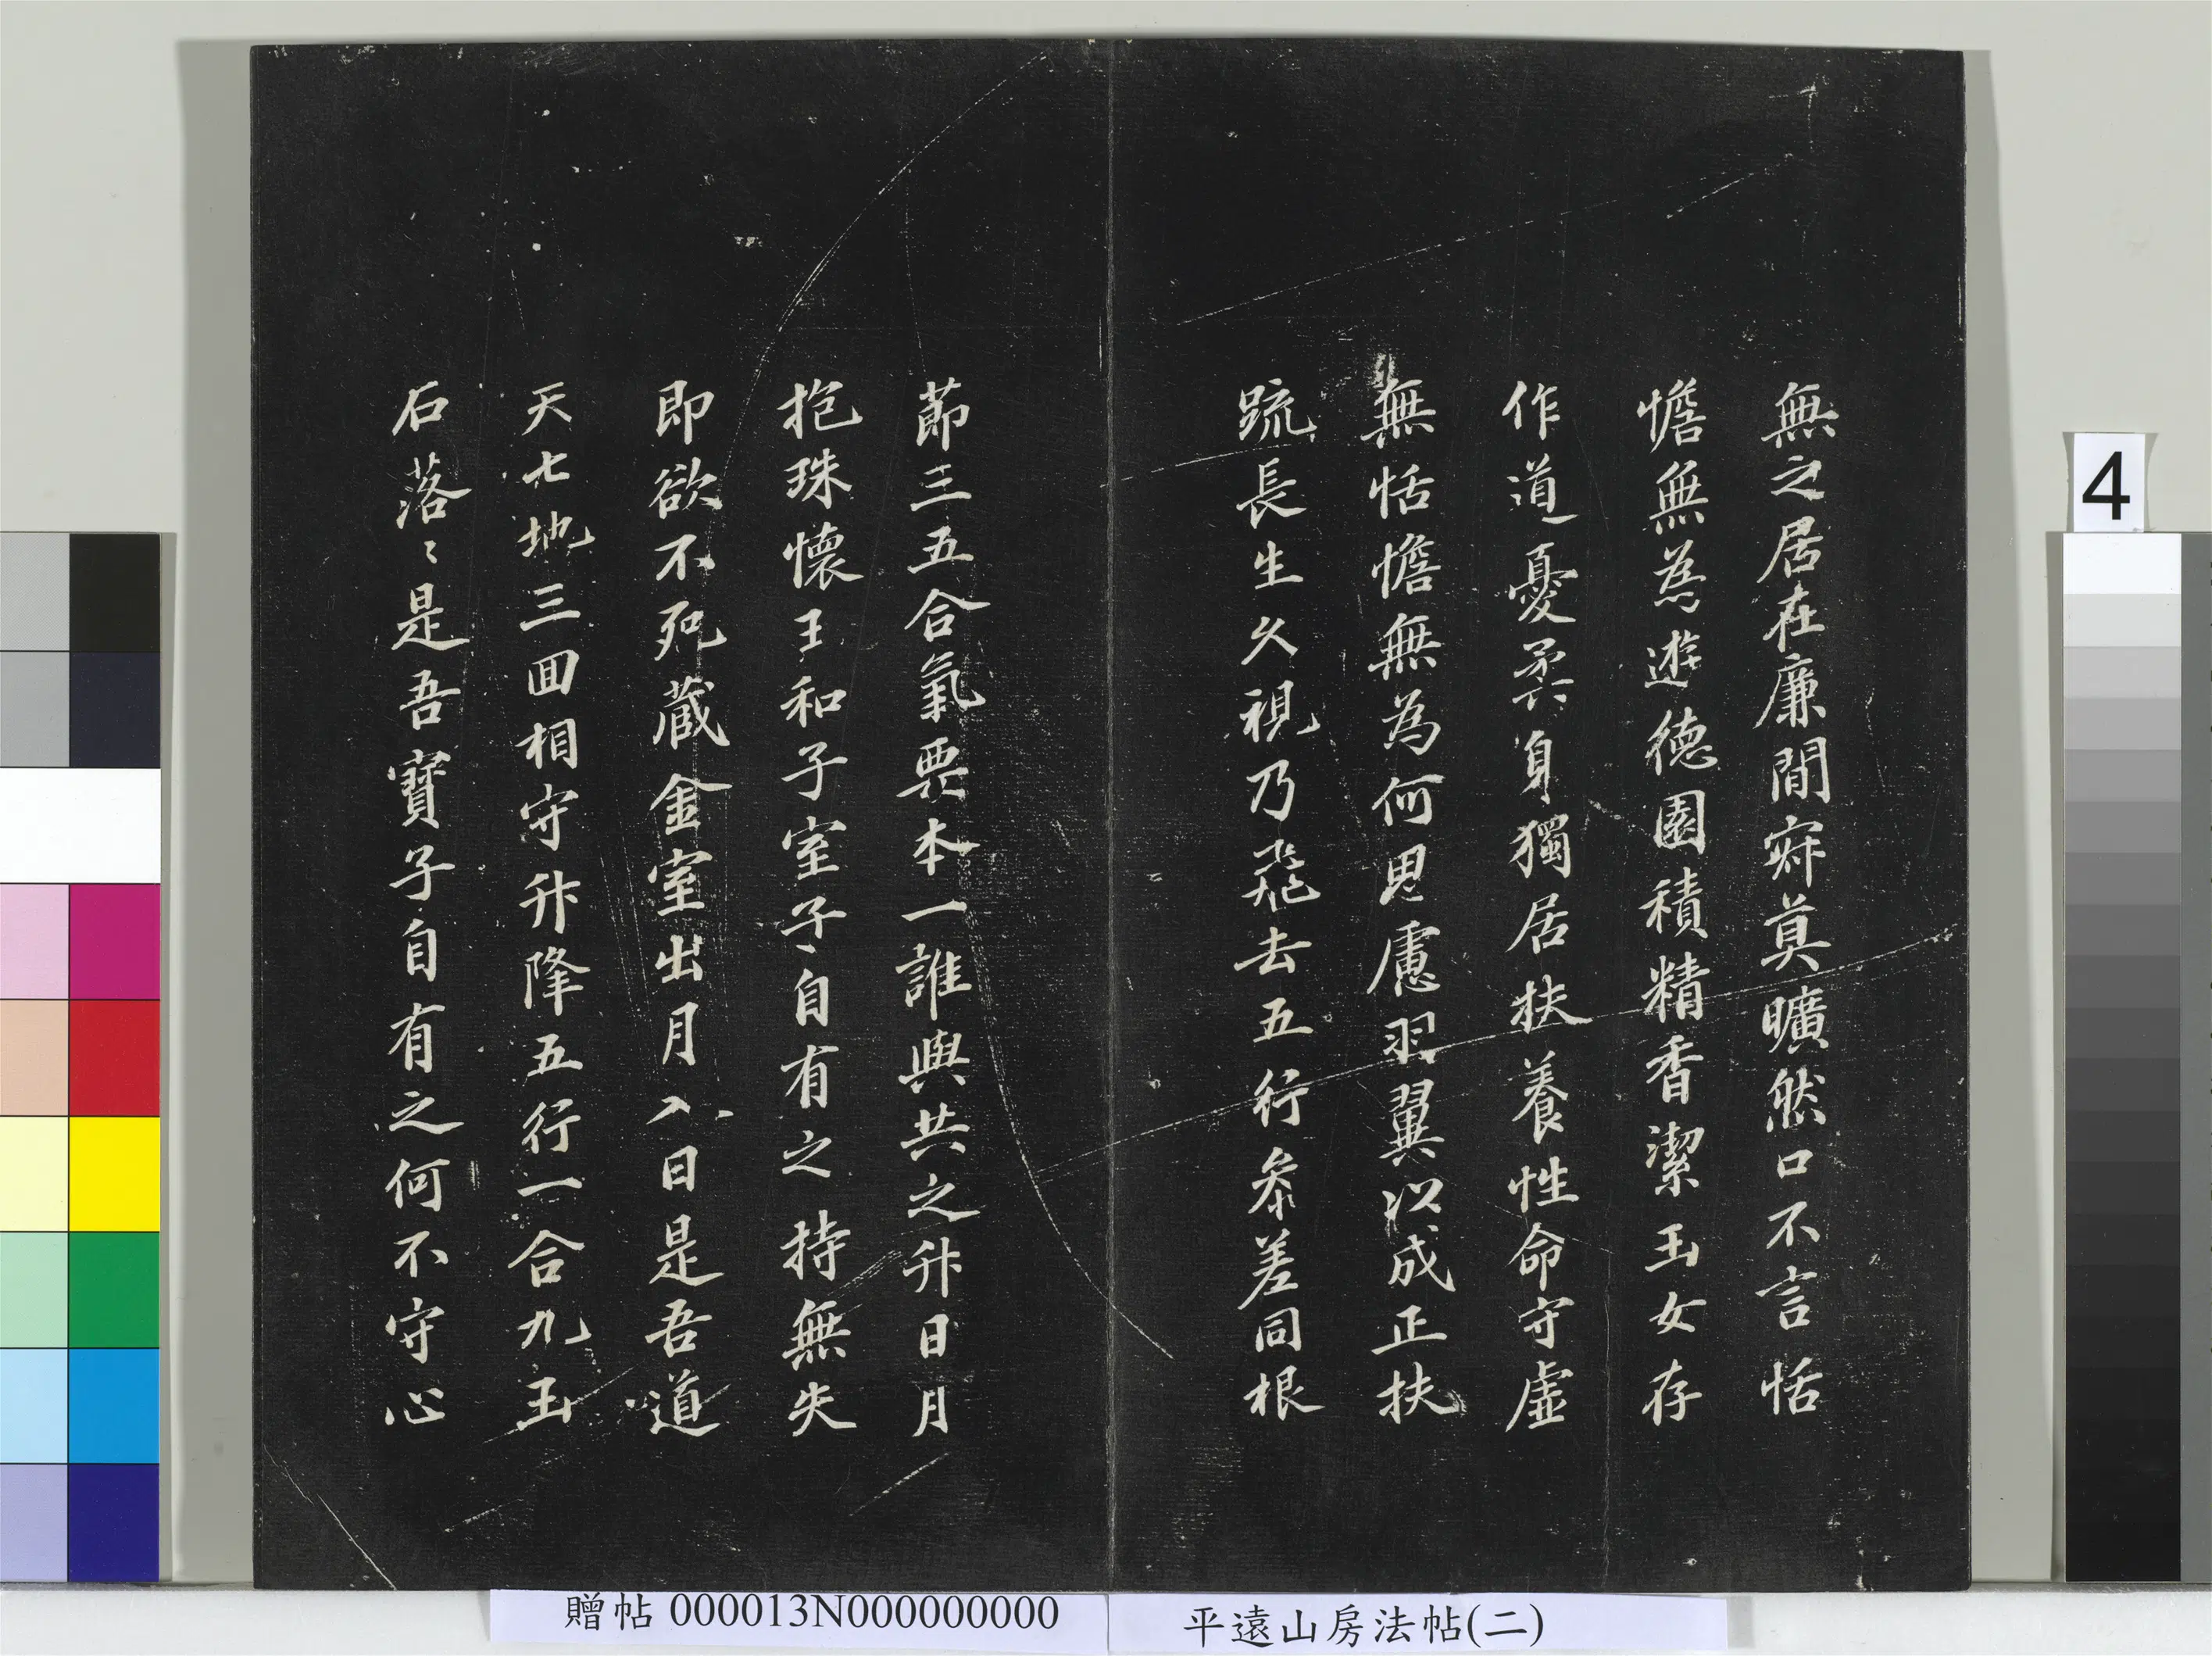 無之居在廉間寂莫曠然口不言恬
憺無為遊德園積精香潔玉女存
作道憂柔身獨居扶養性命守虛
無恬憺無為何思慮羽翼以成正扶
疏長生久視乃飛去五行參差同根
節三五合氣要本一誰與共之升日月
抱珠懷玉和子室子自有之持無失
即欲不死藏金室出月入日是吾道
天七地三回相守升降五行一合九玉
石落〻是吾寶子自有之何不守心
4
贈帖 000013N000000000
平遠山房法帖(二)